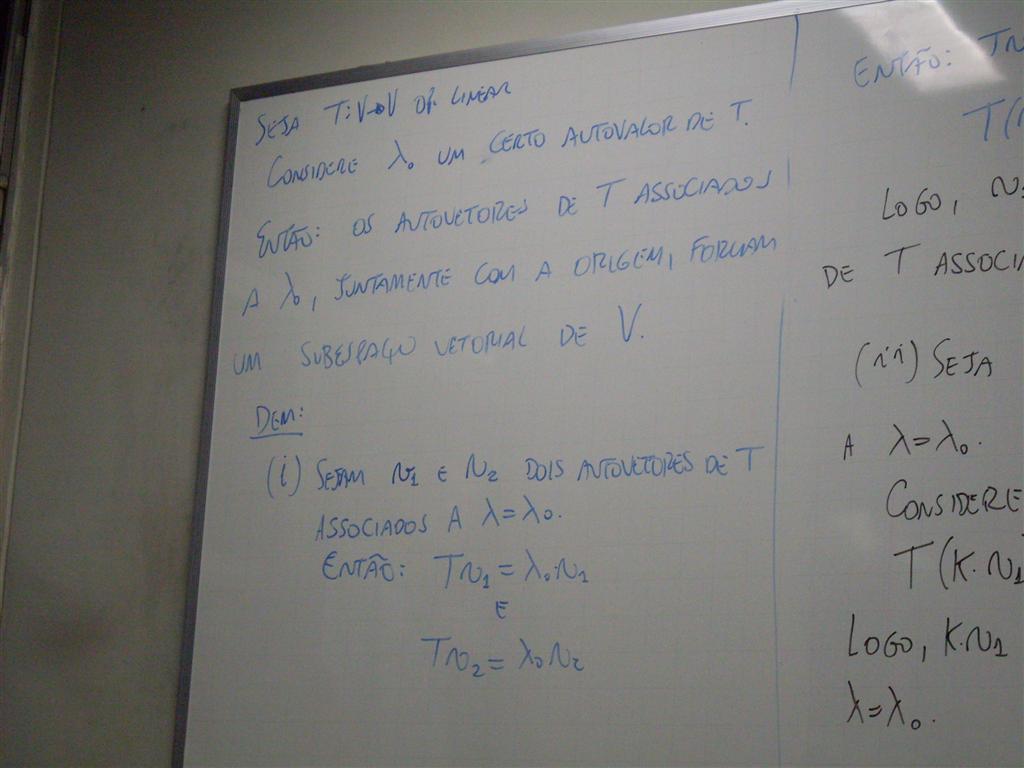 SEJA T:V→V OP. LINEAR
CONSIDERE λ₀ UM CERTO AUTOVALOR DE T.
ENTÃO: OS AUTOVETORES DE T ASSOCIADOS
A λ₀, JUNTAMENTE COM A ORIGEM, FORMAM
UM SUBESPAÇO VETORIAL DE V.
DEM:
(i) SEJAM v₁ E v₂ DOIS AUTOVETORES DE T
ASSOCIADOS A λ=λ₀.
ENTÃO: Tv₁ = λ₀.v₁
E
Tv₂ = λ₀v₂
ENTÃO: Tv
T(
LOGO, v₁
DE T ASSOCI
(ii) SEJA
A λ=λ₀.
CONSIDERE
T(K.v₁
LOGO, K.v₁
λ=λ₀.